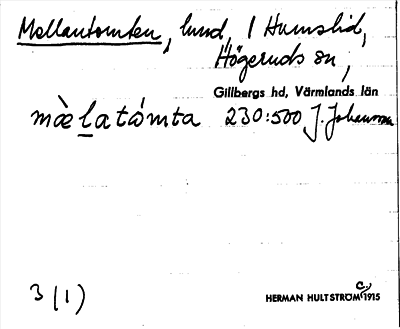 Mellantomten, lund, 1 Humslid,
Högeruds sn,
Gillbergs hd, Värmlands län
mæ̀latómta 230:500 J. Johansson
3 (1)
HERMAN HULTSTRÖM C. 1915